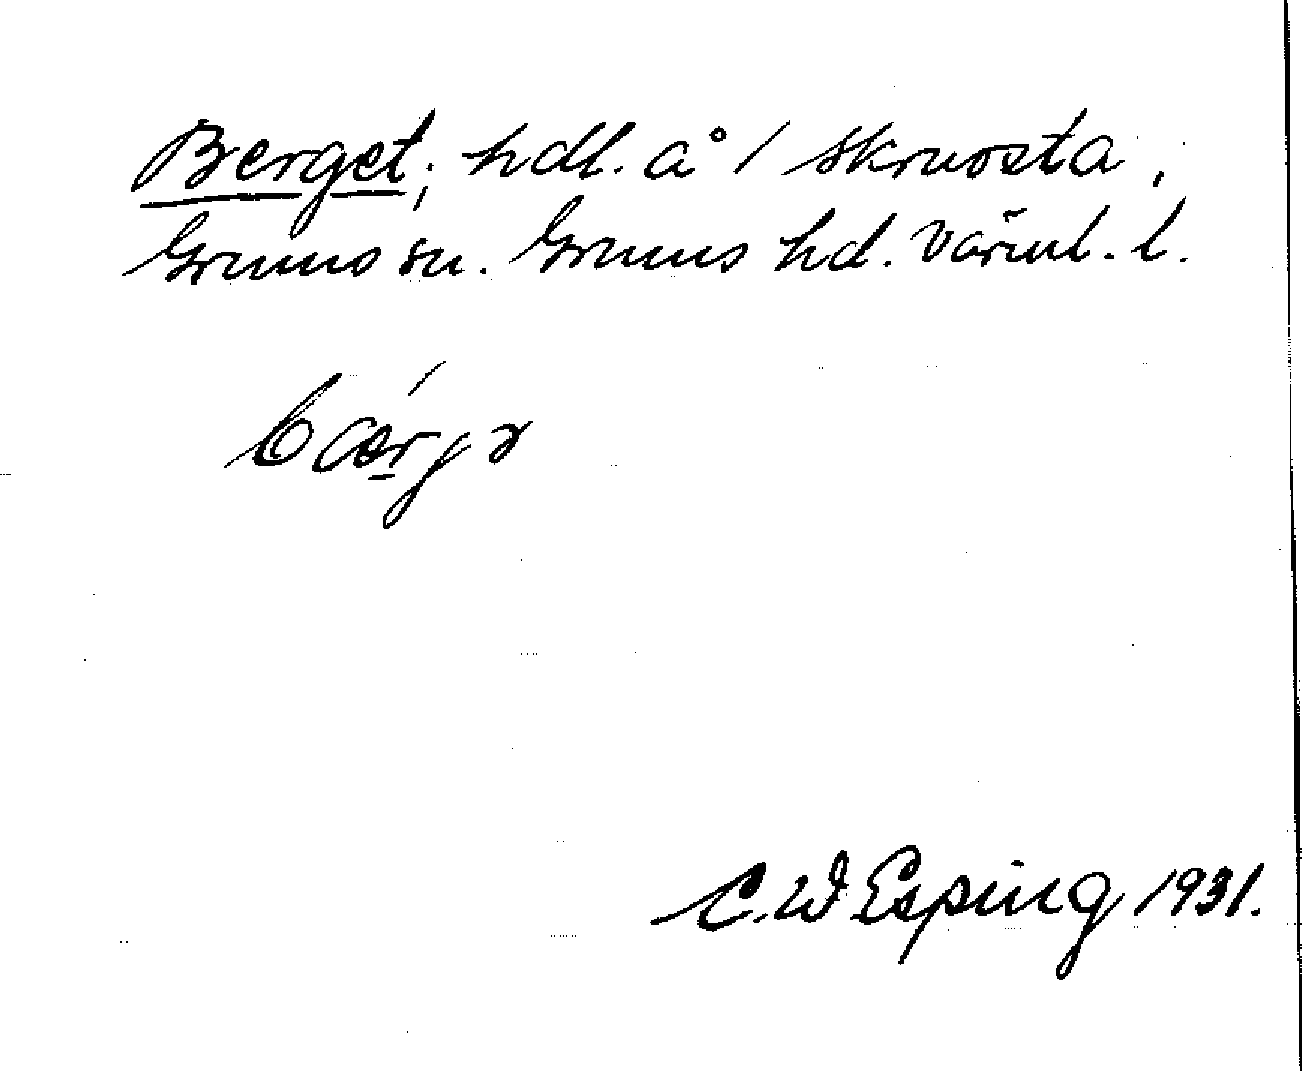 Berget, hdl. å 1 Skruvsta,
Grums sn. Grums hd. Värml. l.
bær̲jə
C. W Esping 1931.